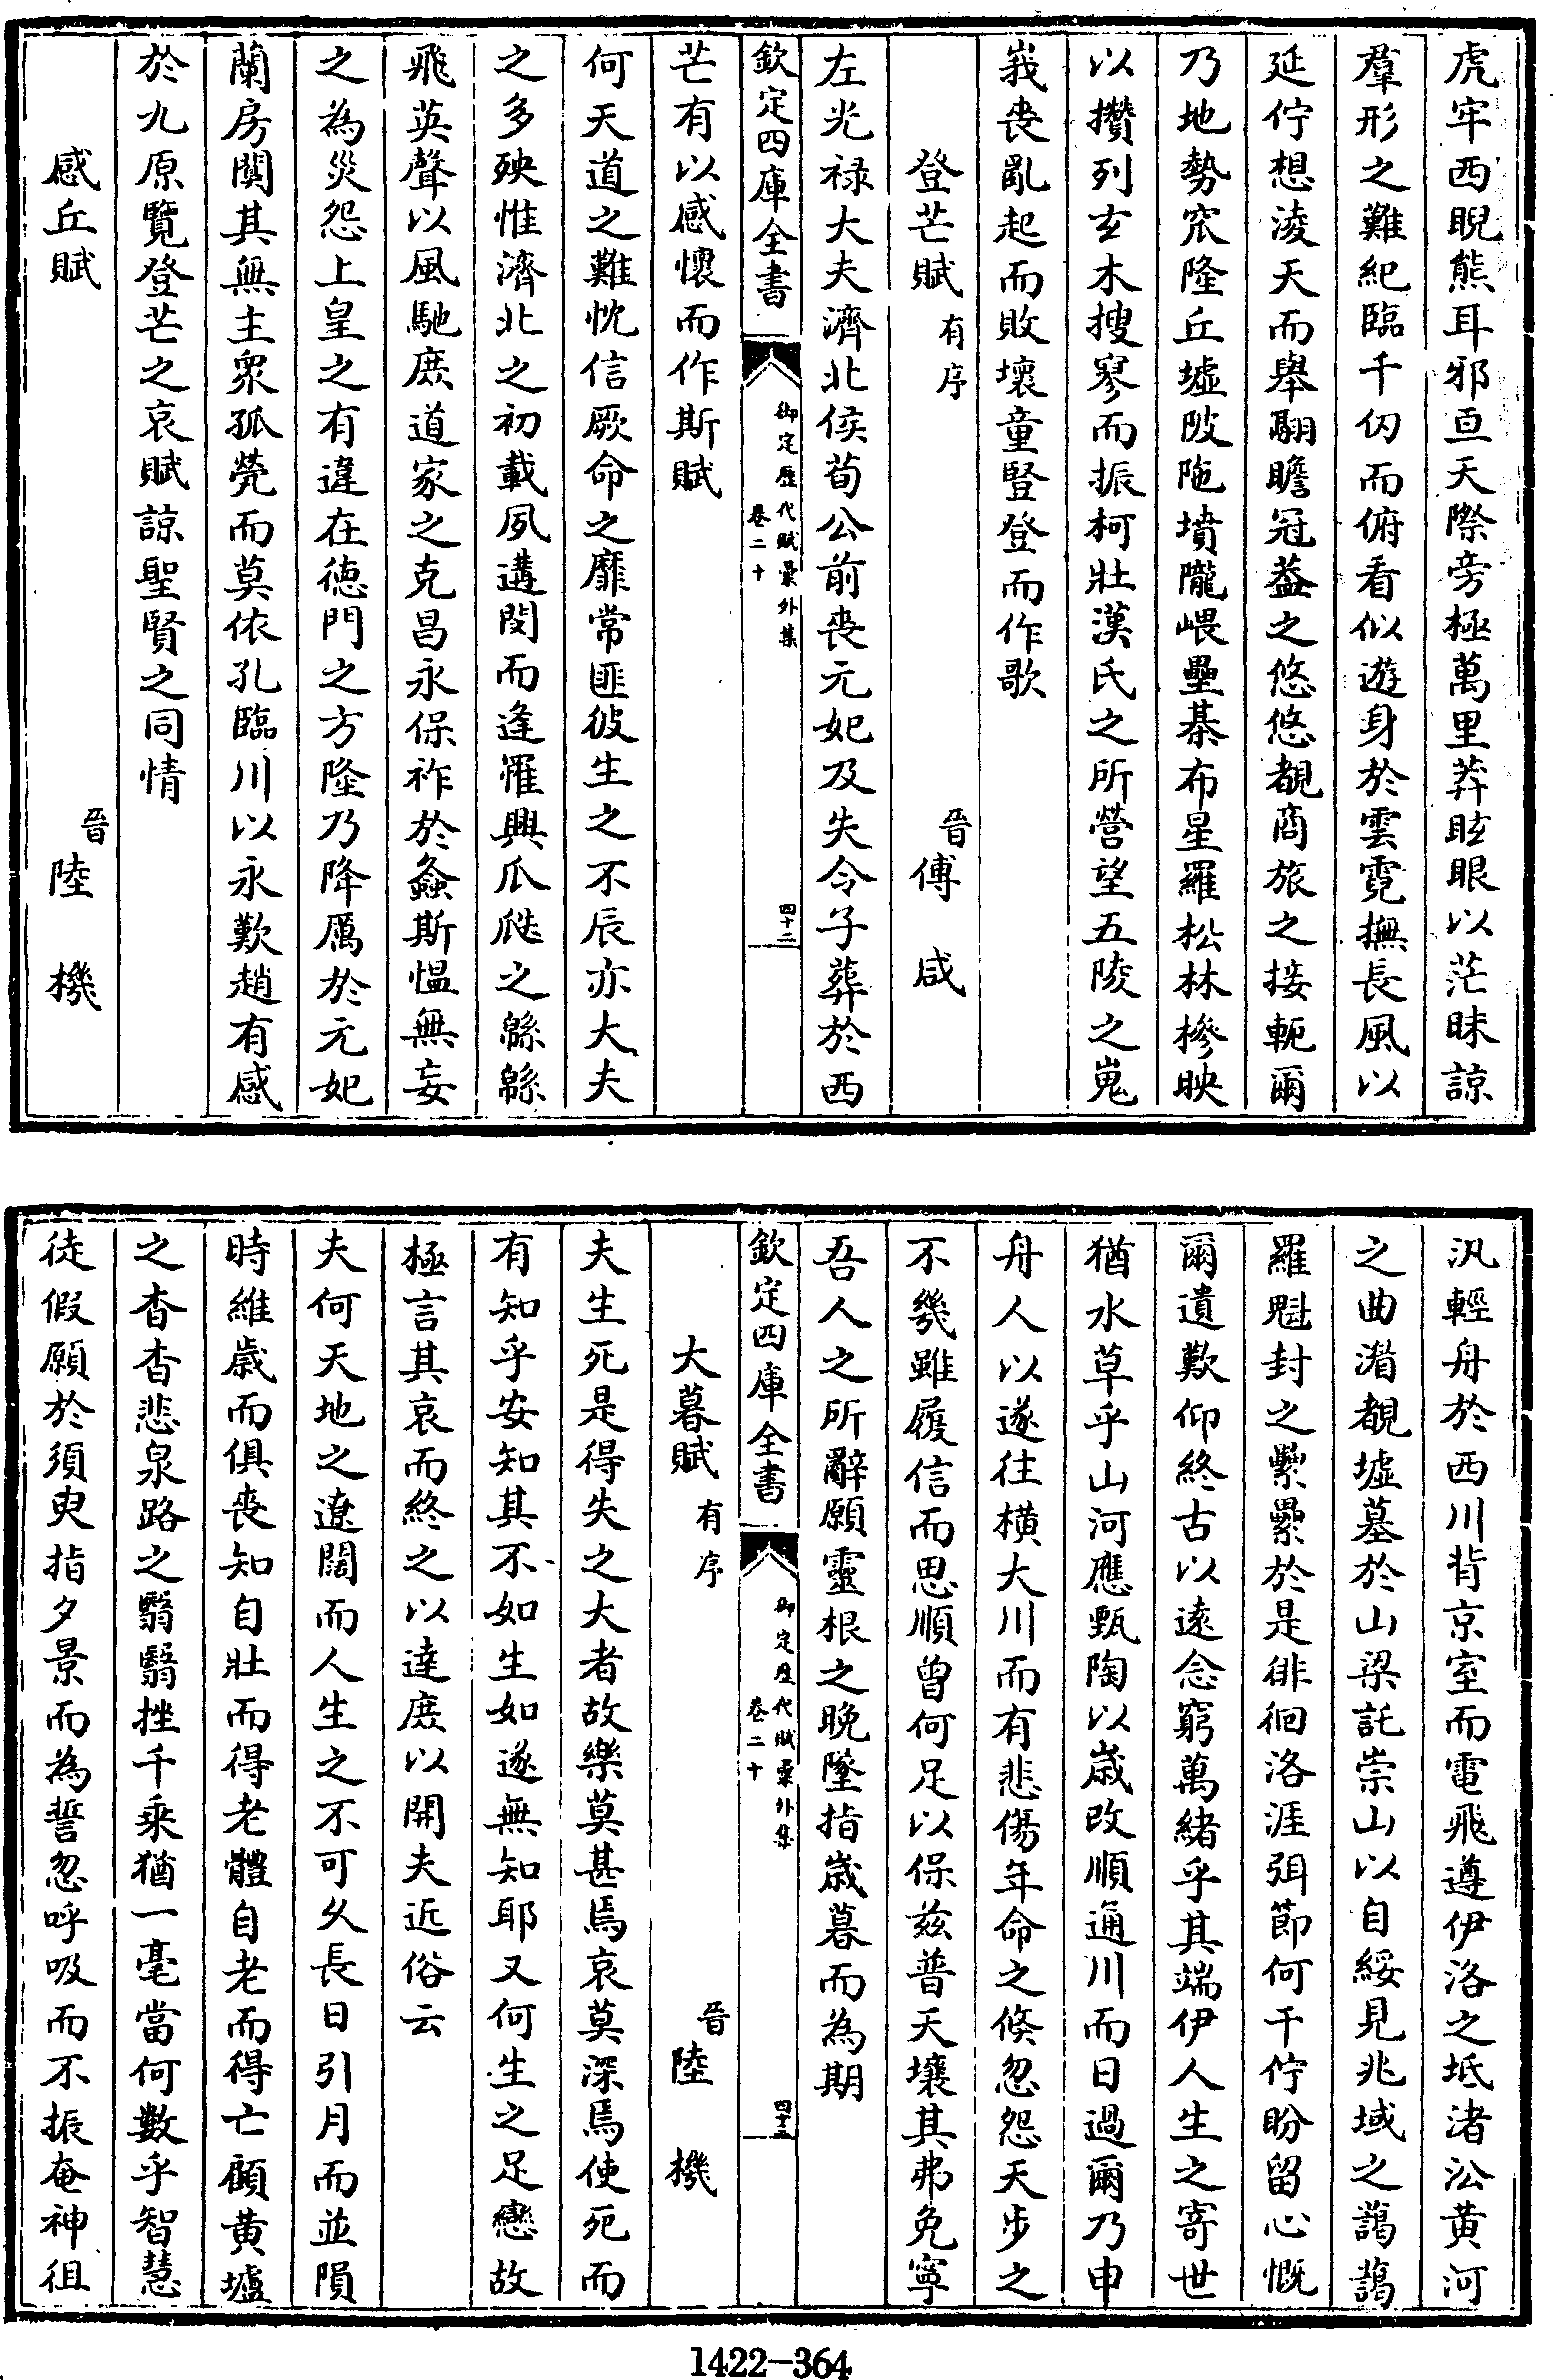 虎牢西睨熊耳邪亘天際旁極萬里莽眩眼以茫昧諒
羣形之難紀臨千仞而俯看似遊身於雲霓撫長風以
延佇想淩天而舉翮瞻冠葢之悠悠覩商旅之接軛爾
乃地勢窊隆丘墟陂陁墳隴㟪壘棊布星羅松林槮映
以攢列玄木搜寥而振柯壯漢氏之所營望五陵之嵬
峩喪亂起而敗壞童豎登而作歌
登芒賦有序 晉傅咸
左光禄大夫濟北侯荀公前喪元妃及失令子葬於西
欽定四庫全書 御定歷代賦彙外集 卷二十 四十二
芒有以感懷而作斯賦
何天道之難忱信厥命之靡常匪彼生之不辰亦大夫
之多殃惟濟北之初載夙遘閔而逢罹興瓜瓞之緜緜
飛英聲以風馳庶道家之克昌永保祚於螽斯愠無妄
之為災怨上皇之有違在徳門之方隆乃降厲於元妃
蘭房闃其無主衆孤煢而莫依孔臨川以永歎趙有感
於九原覽登芒之哀賦諒聖賢之同情
感丘賦 晉陸機
汎輕舟於西川背京室而電飛遵伊洛之坻渚沿黄河
之曲湄覩墟墓於山梁託崇山以自綏見兆域之藹藹
羅魁封之纍纍於是徘徊洛涯弭節河干佇盼留心慨
爾遺歎仰終古以逺念窮萬緒乎其端伊人生之寄世
猶水草乎山河應甄陶以歳改順通川而日過爾乃申
舟人以遂往横大川而有悲傷年命之倐忽怨天步之
不幾雖履信而思順曾何足以保兹普天壤其弗免寧
吾人之所辭願靈根之晚墜指歳暮而為期
欽定四庫全書 御定歷代賦彙外集 卷二十 四十三
大暮賦有序 晉陸機
夫生死是得失之大者故樂莫甚焉哀莫深焉使死而
有知乎安知其不如生如遂無知耶又何生之足戀故
極言其哀而終之以逹庶以開夫近俗云
夫何天地之遼闊而人生之不可久長日引月而並隕
時維歳而俱喪知自壯而得老體自老而得亡顧黄壚
之杳杳悲泉路之翳翳挫千乘猶一毫當何數乎智慧
徒假願於須臾指夕景而為誓忽呼吸而不振奄神徂
1422-364